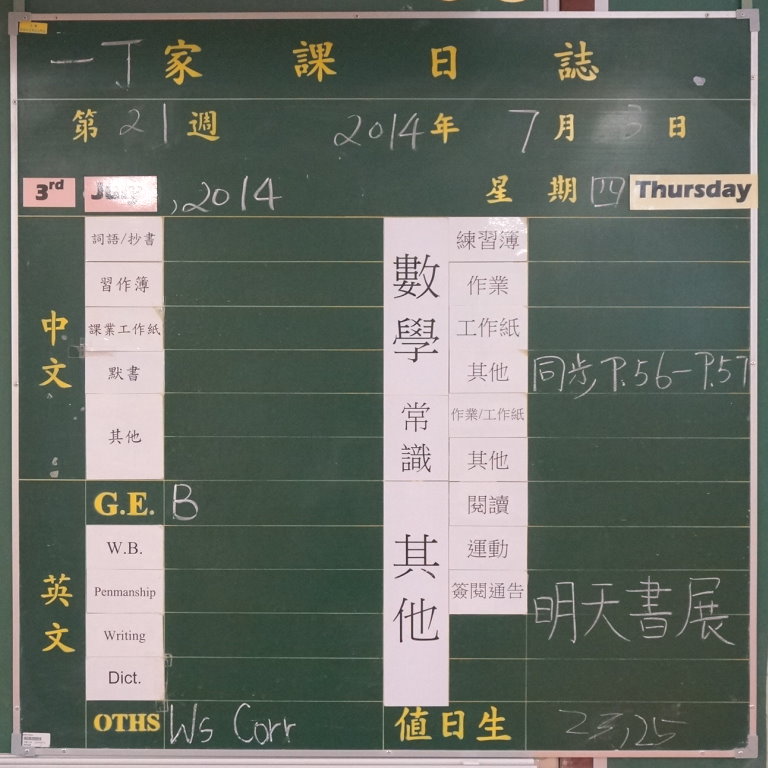 一丁家課日誌
第21週 2014年7月3日
3rd July, 2014 星期四 Thursday
中文
詞語/抄書
習作簿
課業工作紙
默書
其他
英文
G.E. B
W.B.
Penmanship
Writing
Dict.
OTHS Ws Corr
數學
練習簿
作業
工作紙
其他 同步 P.56-P.57
常識
作業/工作紙
其他
其他
閱讀
運動
簽閱通告
明天書展
值日生 23,25